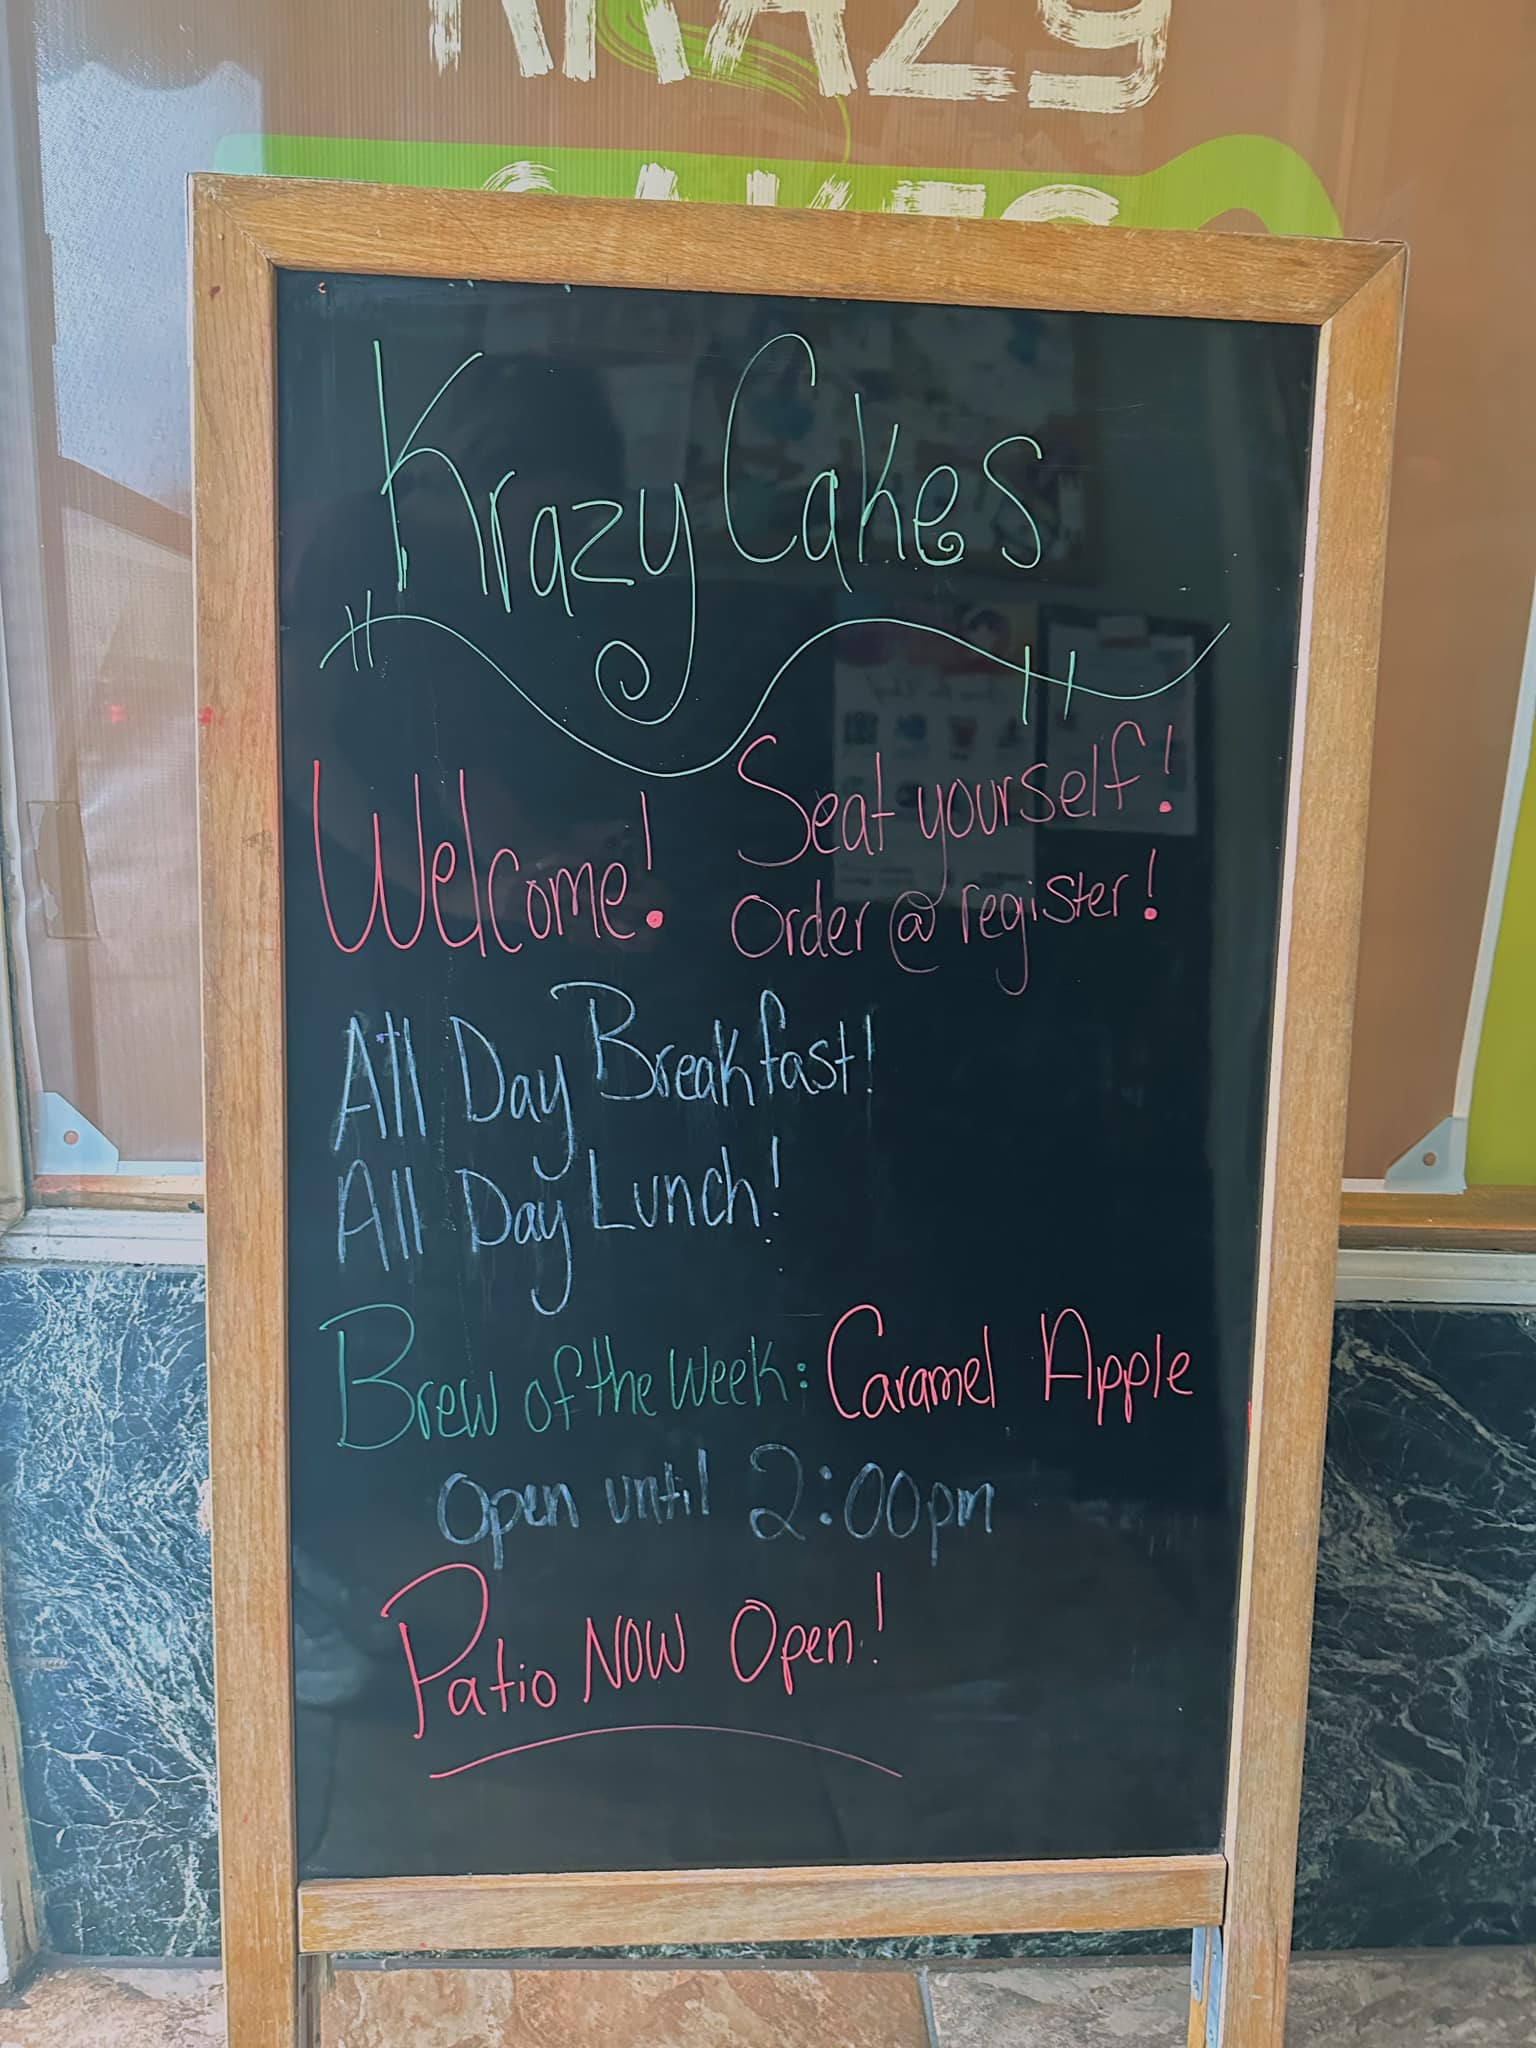 KRAZY
CAKES
Krazy Cakes
Welcome! Seat yourself!
Order @ register!
All Day Breakfast!
All Day Lunch!
Brew of the Week: Caramel Apple
Open until 2:00pm
Patio NOW Open!